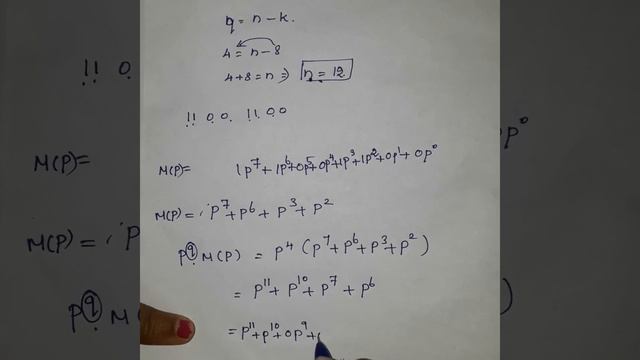 q = n - k.
4 = n - 8
4+8 = n ⇒ n = 12
1 1 0 0 1 1 0 0
M(P) = 1P^7 + 1P^6 + 0P^5 + 0P^4 + 1P^3 + 1P^2 + 0P^1 + 0P^0
M(P) = P^7 + P^6 + P^3 + P^2
P^q M(P) = P^4 (P^7 + P^6 + P^3 + P^2)
= P^11 + P^10 + P^7 + P^6
= P^11 + P^10 + 0P^9 +